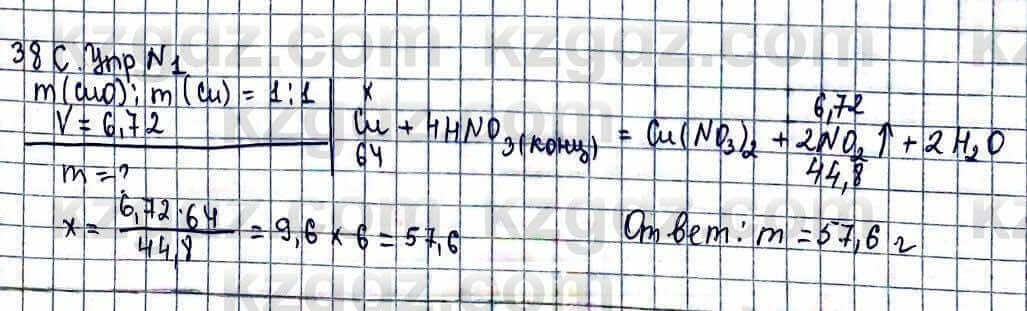 38 С. Упр N1
m(CuO) : m(Cu) = 1 : 1
V = 6,72
m = ?
x 6,72
Cu + 4HNO3(конц) = Cu(NO3)2 + 2NO2↑ + 2H2O
64 44,8
x = 6,72·64 / 44,8 = 9,6 × 6 = 57,6
Ответ: m = 57,6 г
kzgdz.com